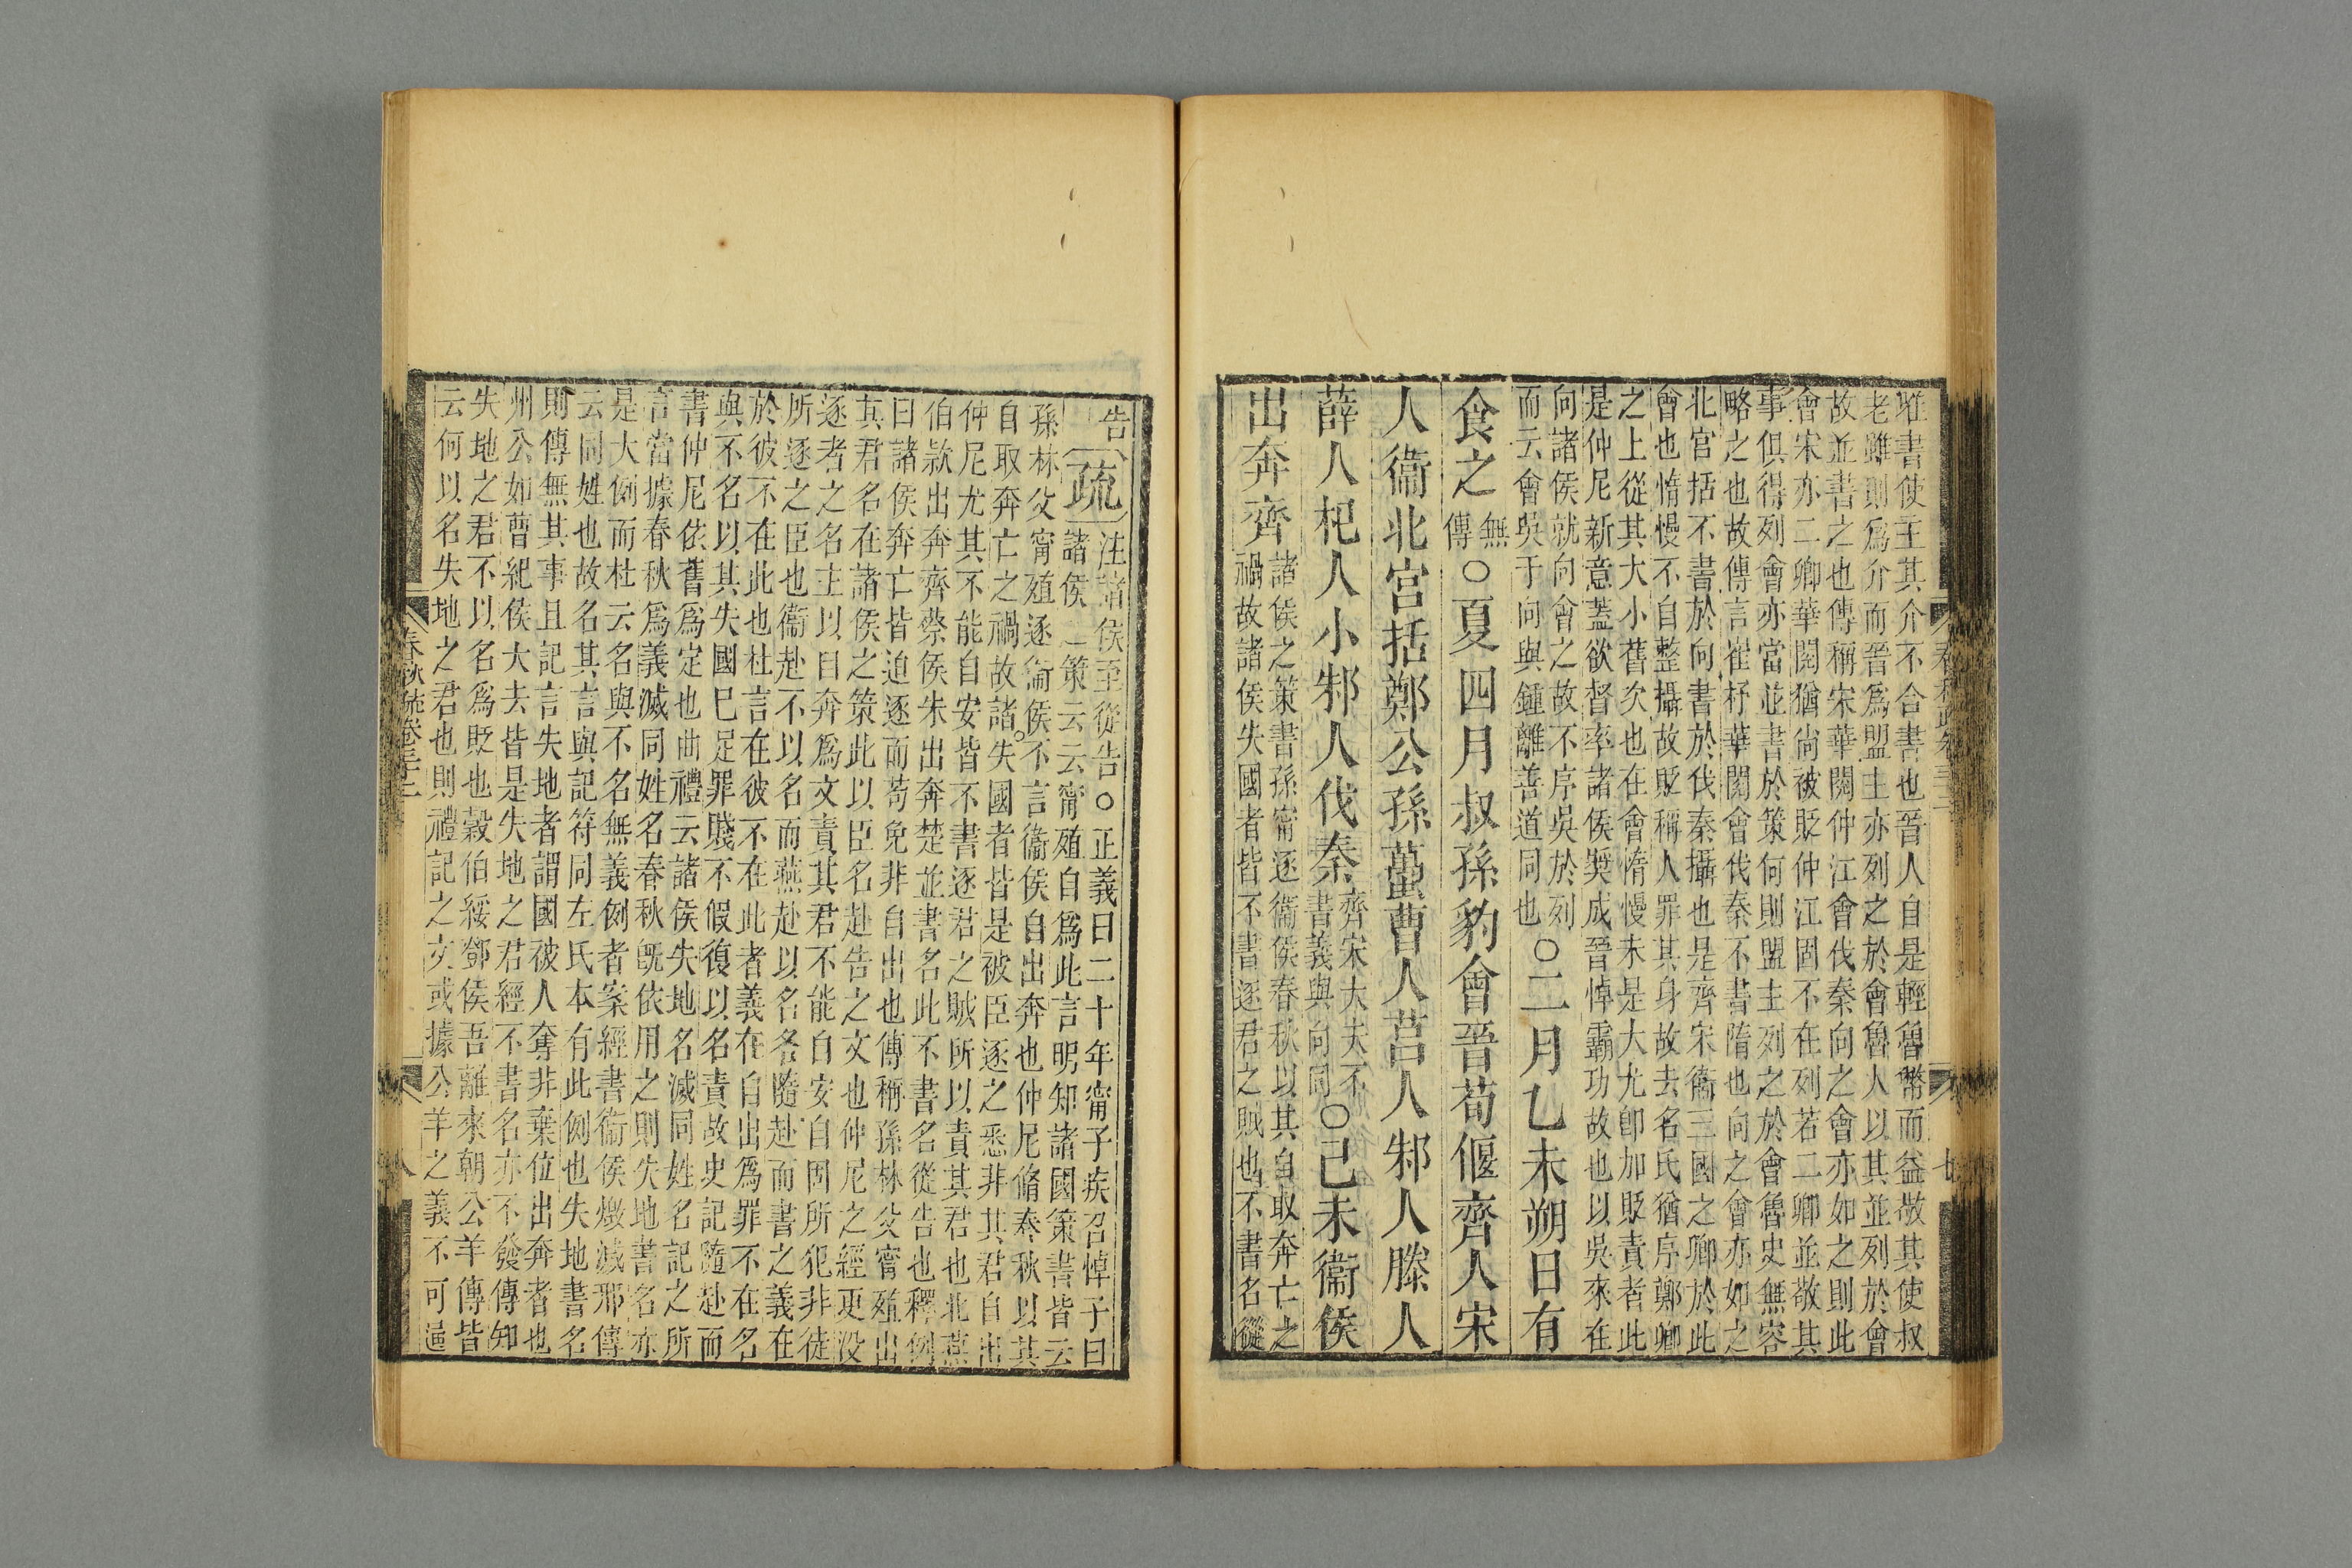 唯書使主其介不合書也晉人自是輕魯幣而益敬其使叔
老雖則爲介而晉爲盟主亦列之於會魯人以其並列於會
故並書之也傳稱宋華閱仲江會伐秦向之會亦如之則此
會宋亦二卿華閱猶尚被貶仲江固不在列若二卿並敬其
事俱得列會亦當並書於策何則盟主列之於會魯史無容
略之也故傳言崔杼華閱會伐秦不書惰也向之會亦如之
北宮括不書於向書於伐秦攝也是齊宋衞三國之卿於此
會也惰慢不自整攝故貶稱人罪其身故去名氏猶序鄭卿
之上從其大小舊次也在會惰慢未是大尤卽加貶責者此
是仲尼新意蓋欲督率諸侯奬成晉悼霸功故也以吳來在
向諸侯就向會之故不序吳於列
而云會吳于向與鍾離善道同也
○二月乙未朔日有
食之
無
傳
○夏四月叔孫豹會晉荀偃齊人宋
人衞北宮括鄭公孫蠆曹人莒人邾人滕人
薛人杞人小邾人伐秦
齊宋大夫不
書義與向同
○己未衞侯
出奔齊
諸侯之策書孫甯逐衞侯春秋以其自取奔亡之
禍故諸侯失國者皆不書逐君之賊也不書名從
春秋疏卷三十二
七
告
疏
注諸侯至從告○正義曰二十年甯子疾召悼子曰
諸侯之策云云甯殖自爲此言明知諸國策書皆云
孫林父甯殖逐衞侯不言衞侯自出奔也仲尼脩春秋以其
自取奔亡之禍故諸失國者皆是被臣逐之悉非其君自出
仲尼尤其不能自安皆不書逐君之賊所以責其君也北燕
伯款出奔齊蔡侯朱出奔楚並書名此不書名從告也釋例
曰諸侯奔亡皆迫逐而苟免非自出也傳稱孫林父甯殖出
其君名在諸侯之策此以臣名赴告之文也仲尼之經更沒
逐者之名主以自奔爲文責其君不能自安自固所犯非徒
所逐之臣也衞赴不以名而燕赴以名各隨赴而書之義在
於彼不在此也杜言在彼不在此者義在自出爲罪不在名
與不名以其失國已足罪賤不假復以名責故史記隨赴而
書仲尼依舊爲定也曲禮云諸侯失地名滅同姓名記之所
言當據春秋爲義滅同姓名春秋旣依用之則失地書名亦
是大例而杜云名與不名無義例者案經書衞侯燬滅邢傳
云同姓也故名其言與記符同左氏本有此例也失地書名
則傳無其事且記言失地者謂國被人奪非棄位出奔者也
州公如曹紀侯大去皆是失地之君經不書名亦不發傳知
失地之君不以名爲貶也穀伯綏鄧侯吾離來朝公羊傳皆
云何以名失地之君也則禮記之文或據公羊之義不可通
春秋疏卷三十二
八